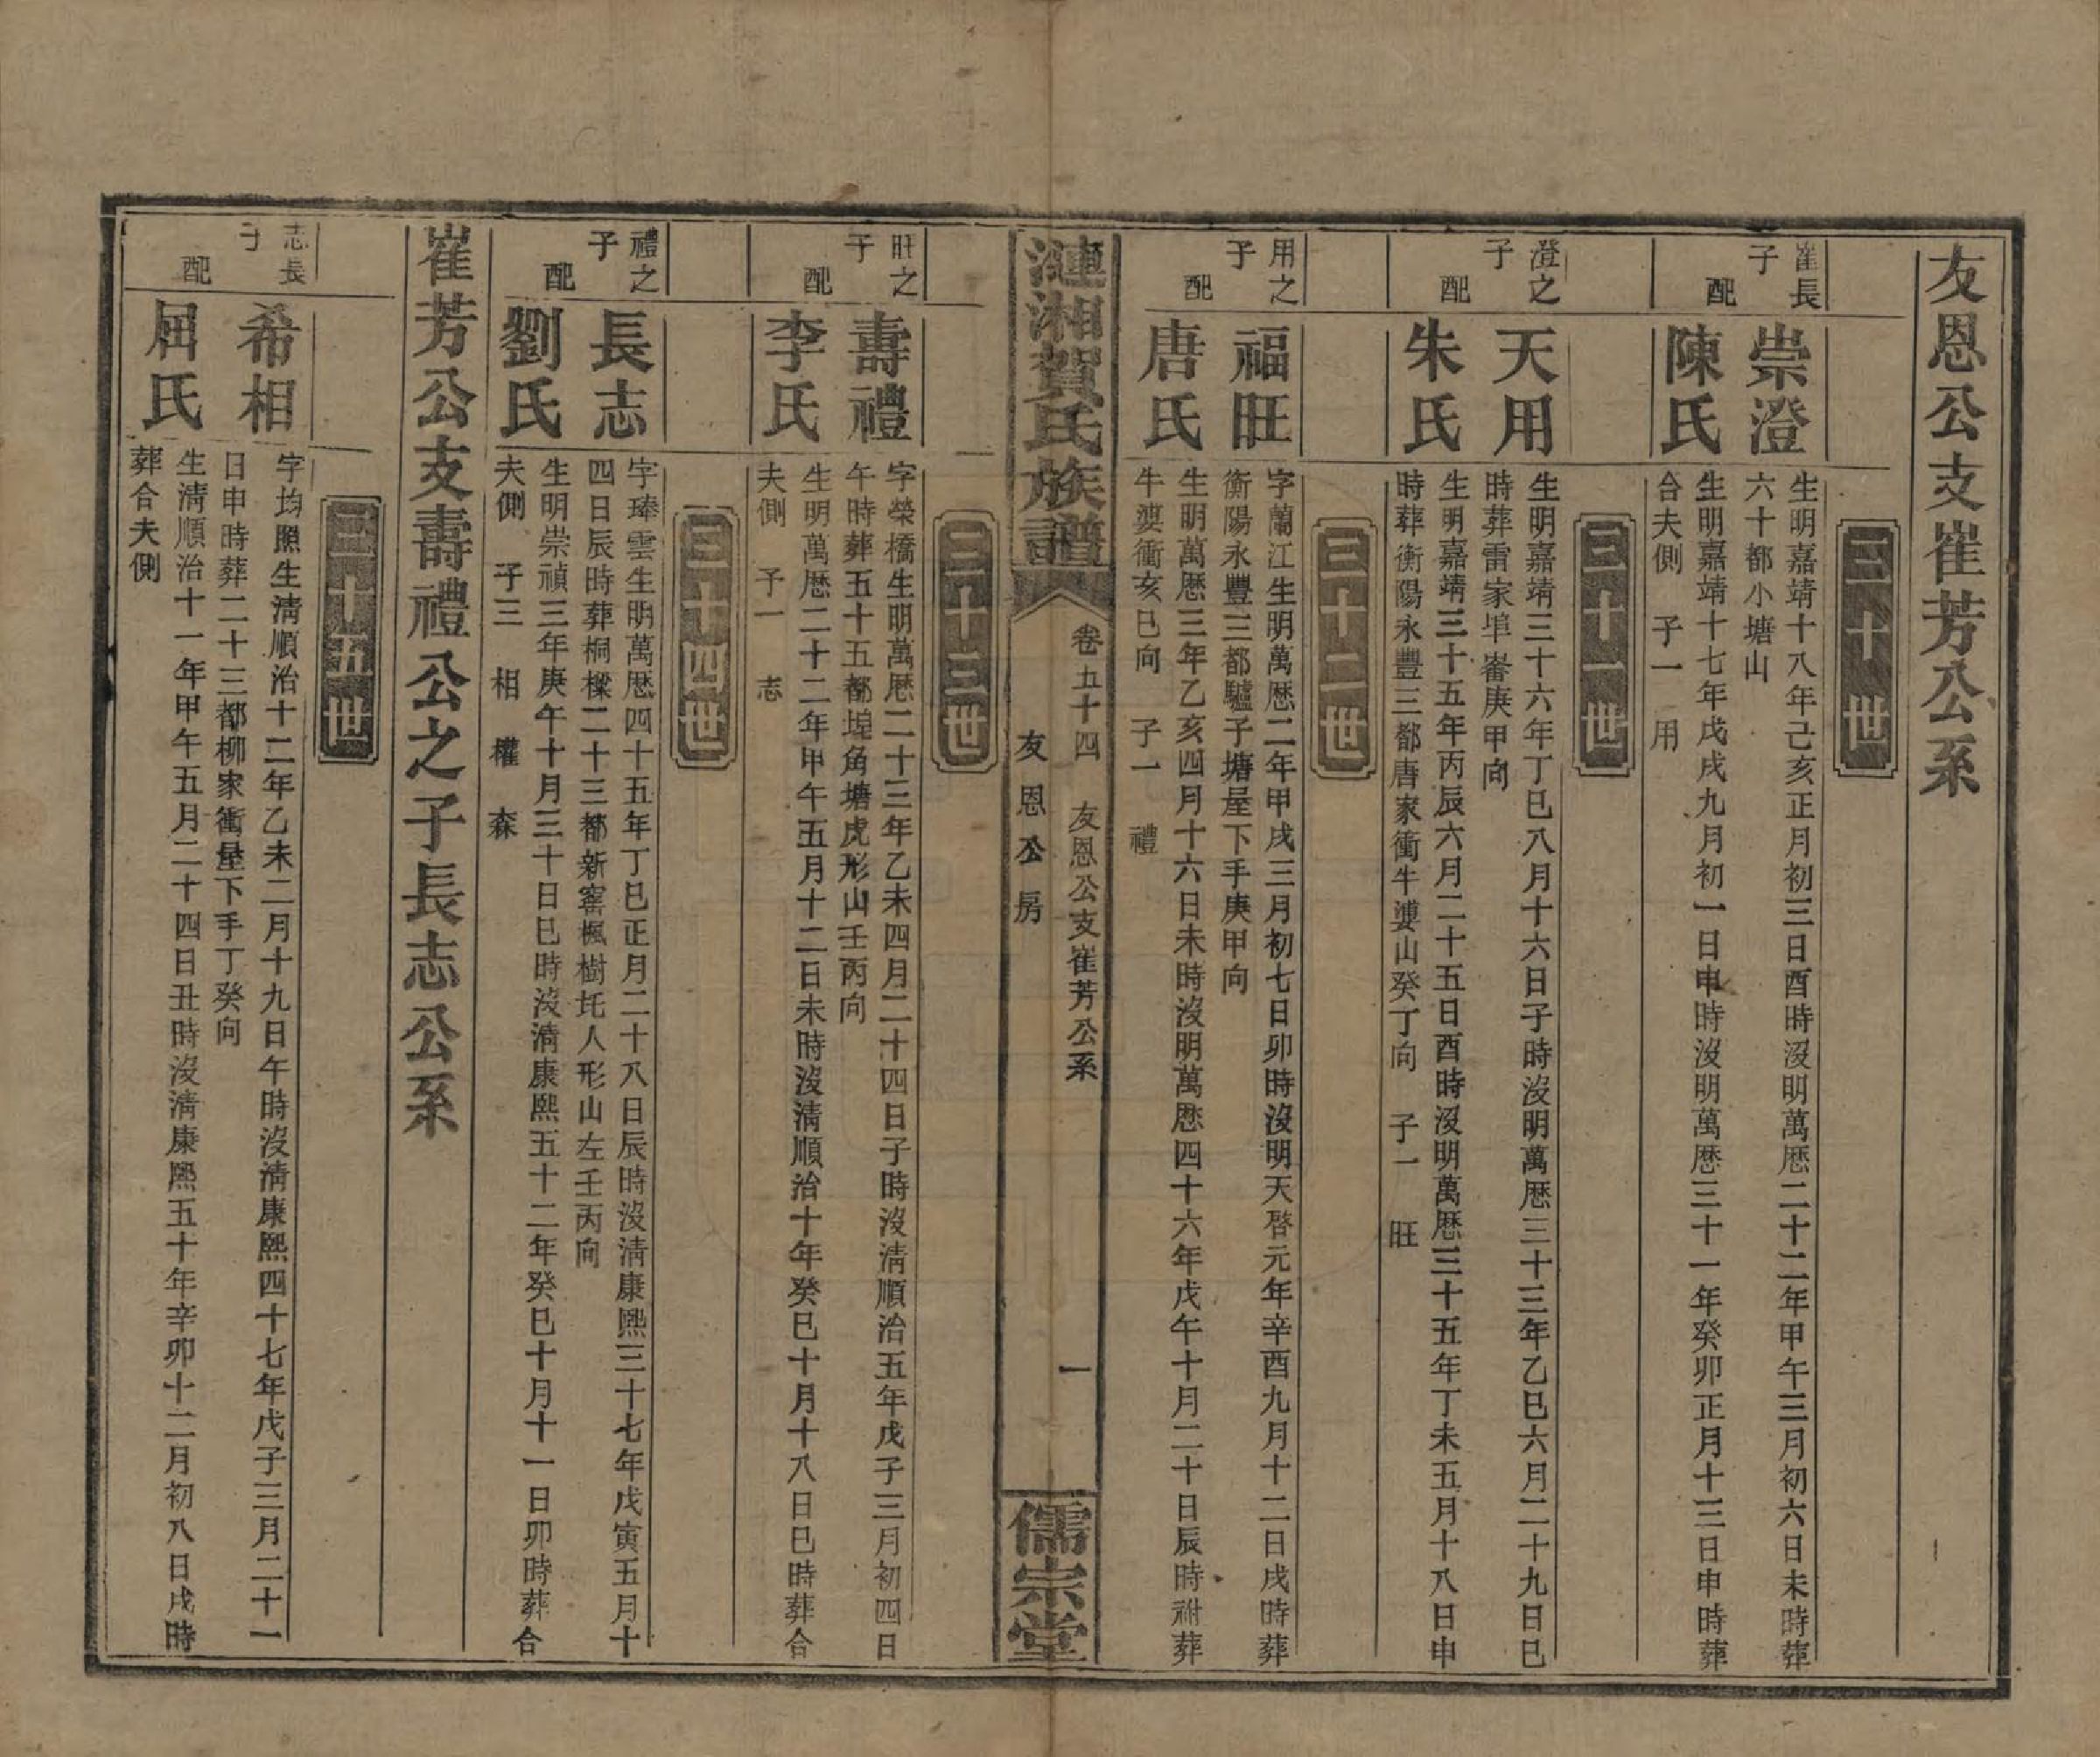 友恩公支崔芳公系
三十世
崔長子
崇澄
生明嘉靖十八年己亥正月初三日酉時沒明萬歷二十二年甲午三月初六日未時葬
六十都小塘山
配
陳氏
生明嘉靖十七年戊戌九月初一日申時沒明萬歷三十一年癸卯正月十三日申時葬
合夫側 子一 用
三十一世
澄之子
天用
生明嘉靖三十六年丁巳八月十六日子時沒明萬歷三十三年乙巳六月二十九日巳
時葬雷家埠崙庚甲向
配
朱氏
生明嘉靖三十五年丙辰六月二十五日酉時沒明萬歷三十五年丁未五月十八日申
時葬衡陽永豐三都唐家衝牛婆山癸丁向 子一 旺
三十二世
用之子
福旺
字蘭江生明萬歷二年甲戌三月初七日卯時沒明天啓元年辛酉九月十二日戌時葬
衡陽永豐三都驢子塘屋下手庚甲向
配
唐氏
生明萬歷三年乙亥四月十六日未時沒明萬歷四十六年戊午十月二十日辰時祔葬
牛婆衝亥巳向 子一 禮
漣湘賀氏族譜
卷五十四 友恩公支崔芳公系
友恩公房
一
儒宗堂
三十三世
旺之子
壽禮
字榮橋生明萬歷二十三年乙未四月二十四日子時沒清順治五年戊子三月初四日
午時葬五十五都埠角塘虎形山壬丙向
配
李氏
生明萬歷二十二年甲午五月十二日未時沒清順治十年癸巳十月十八日巳時葬合
夫側 子一 志
三十四世
禮之子
長志
字瑧雲生明萬歷四十五年丁巳正月二十八日辰時沒清康熙三十七年戊寅五月十
四日辰時葬桐樑二十三都新窰楓樹坉人形山左壬丙向
配
劉氏
生明崇禎三年庚午十月三十日巳時沒清康熙五十二年癸巳十月十一日卯時葬合
夫側 子三 相 權 森
崔芳公支壽禮公之子長志公系
三十五世
志長子
希相
字均照生清順治十二年乙未二月十九日午時沒清康熙四十七年戊子三月二十一
日申時葬二十三都柳家衝屋下手丁癸向
配
屈氏
生清順治十一年甲午五月二十四日丑時沒清康熙五十年辛卯十二月初八日戌時
葬合夫側